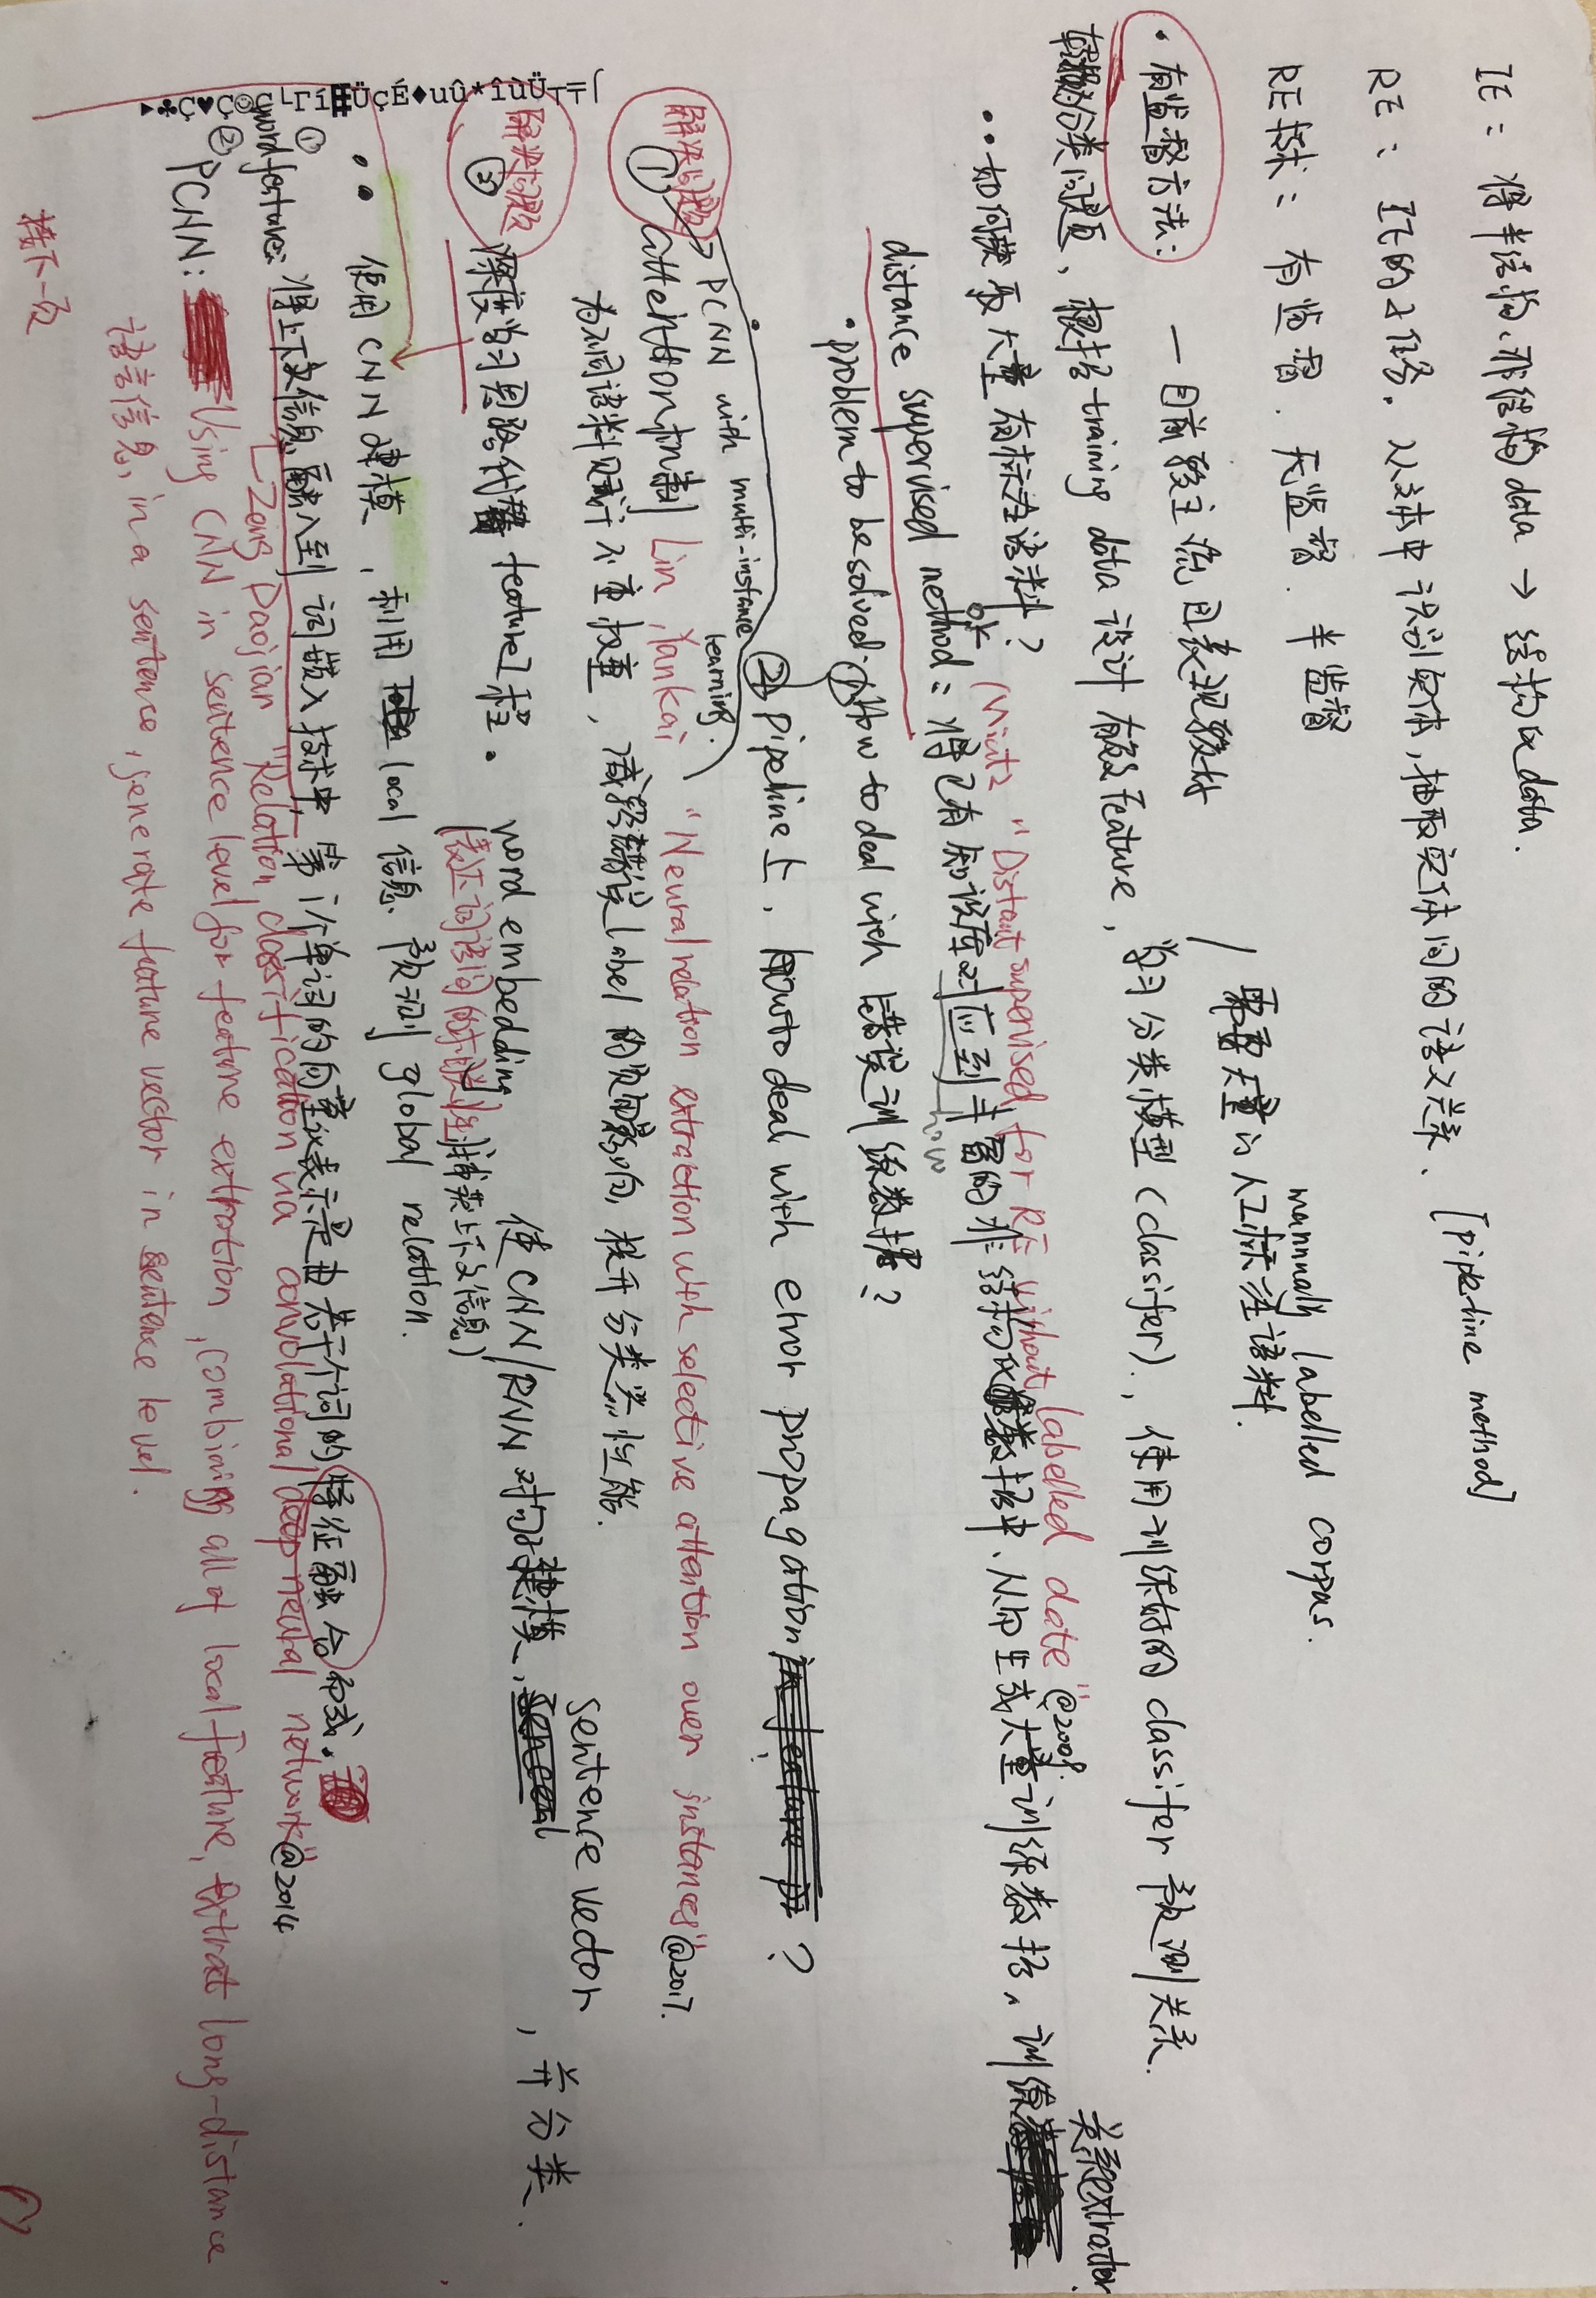 IE: 将半结构、非结构data → 结构化data.
RE: IE的子任务. 从文本中识别实体, 抽取实体间的语义关系. [pipeline method]
RE技术: 有监督. 无监督. 半监督
mannnaly labelled corpus.
/ 需要大量的人工标注语料.
• 有监督方法: — 目前较主流且表现较好
分类问题, 根据training data 设计有效feature, 学习分类模型 (classifer), 使用训练好的 classifer 预测关系.
(Mintz "Distant supervised for RE without labelled date" @2009.
•• 如何获取大量有标注语料?
ok
关系extrator.
distance supervised method: 将已有知识库对应到丰富的非结构化数据中、从而生成大量训练数据, 训练
how
• problem to be solved: ① How to deal with 错误训练数据?
② pipeline上, how to deal with error propagation ?
→ PCNN with multi-instance learning.
解决问题① attention机制 Lin, Yankai, "Neural relation extraction with selective attention over instances" @2017.
为不同语料赋予不重权重, 减轻错误label的负面影响, 提升分类器性能.
解决问题② 深度学习网络代替feature工程. word embedding 使CNN/RNN对句子建模, sentence vector, 并分类.
(表达词语间的 上下文信息)
•• 使用CNN建模, 利用 local 信息, 预测 global relation.
① word feature: 将上下文信息融入到词嵌入技术中, 第i个单词的向量表示是由若干个词的特征融合而成.
Zeng Daojian "Relation classification via convolational deep neural network" @2014
② PCNN: Using CNN in sentence level for feature extration, combining all of local feature, extrat long-distance
语言信息, in a sentence, generate feature vector in sentence level.
接下一页